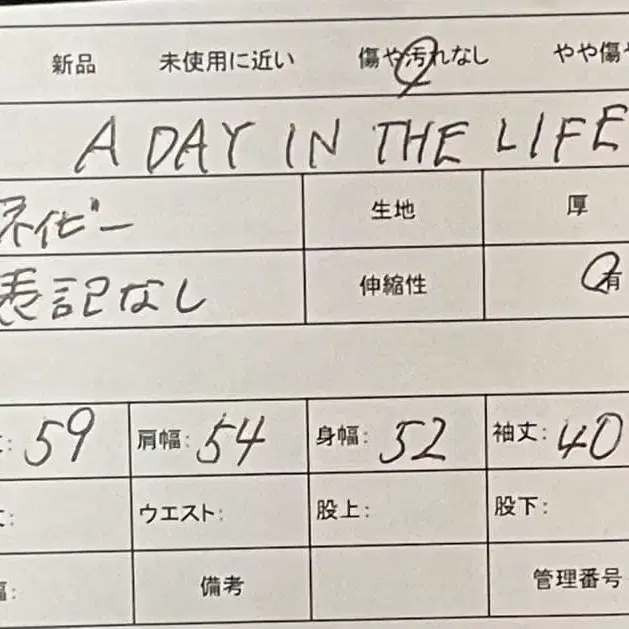 新品 未使用に近い 傷や汚れなし やや傷や
A DAY IN THE LIFE
ネイビー 生地 厚
表記なし 伸縮性 有
: 59 肩幅: 54 身幅: 52 袖丈: 40
: ウエスト: 股上: 股下:
幅: 備考 管理番号